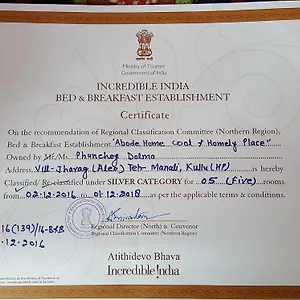 Ministry of Tourism
Government of India
INCREDIBLE INDIA
BED & BREAKFAST ESTABLISHMENT
Certificate
On the recommendation of Regional Classification Committee (Northern Region),
Bed & Breakfast Establishment "Abode Home cool & Homely Place"
Owned by Mr/Ms. Phunchog Dolma
Address Vill-Jharag (Aleo) Teh- Manali, Kullu (HP) is hereby
Classified/Re-classified under SILVER CATEGORY for 05 (Five) rooms
from 02.12.2016 to 01.12.2018 as per the applicable terms & conditions.
16(139)/16-B&B
.12-2016
Regional Director (North) & Convenor
Regional Classification Committee (Northern Region)
Atithidevo Bhava
Incredible !ndia